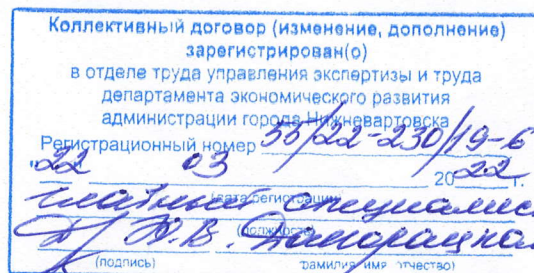 Коллективный договор (изменение, дополнение)
зарегистрирован(о)
в отделе труда управления экспертизы и труда
департамента экономического развития
администрации города Нижневартовска
Регистрационный номер 55/22-230/19-6
"22" 03 2022 г.
(дата регистрации)
главный специалис
(должность)
Н.В.
(подпись) фамилия, имя, отчество)